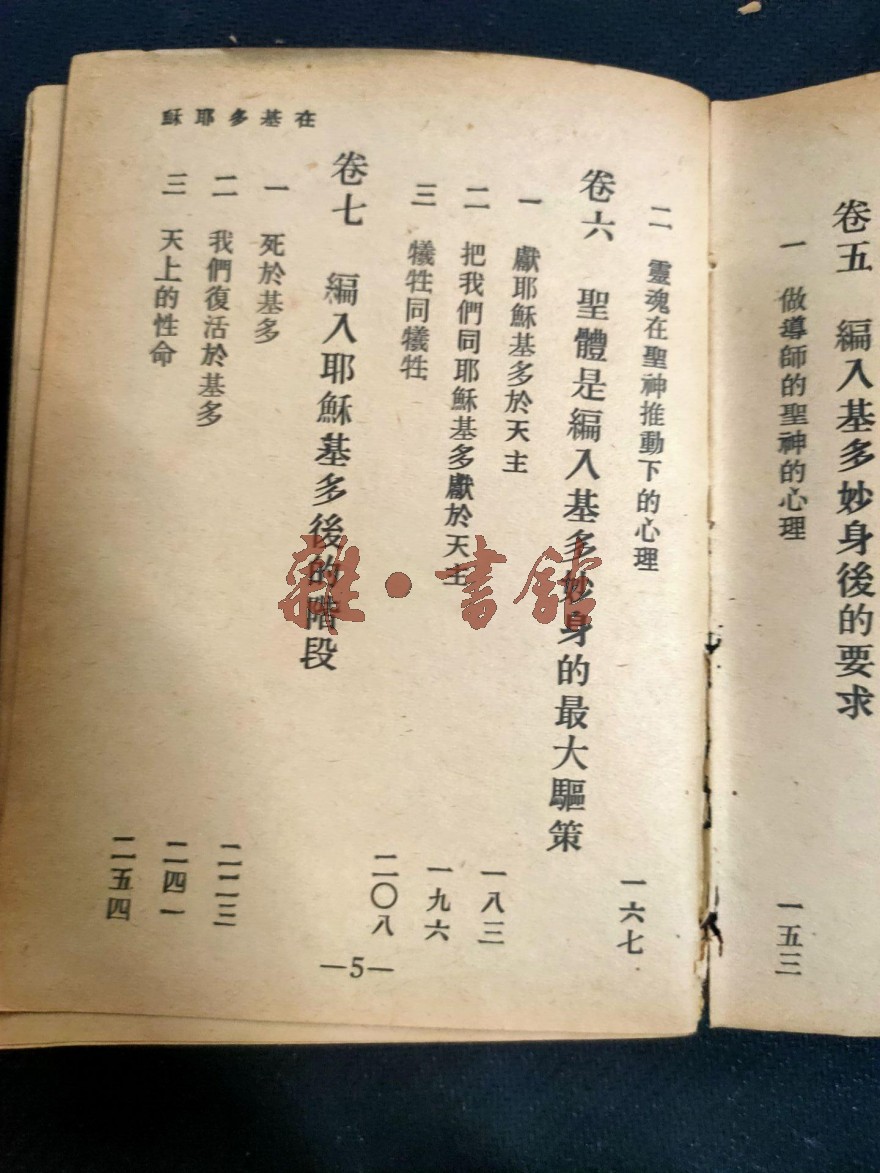 卷五 編入基多妙身後的要求
一 做導師的聖神的心理 一五三
二 靈魂在聖神推動下的心理 一六七
卷六 聖體是編入基多妙身的最大驅策
一 獻耶穌基多於天主 一八三
二 把我們同耶穌基多獻於天主 一九六
三 犧牲同犧牲 二〇八
卷七 編入耶穌基多後的階段
一 死於基多 二二三
二 我們復活於基多 二四一
三 天上的性命 二五四
在基多耶穌
—5—
雜·書館